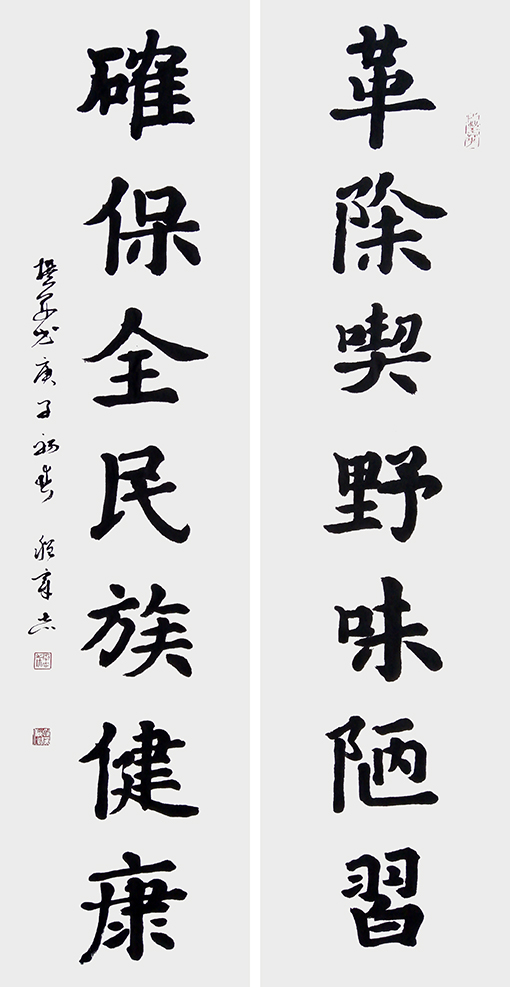 革除喫野味陋習
確保全民族健康
庚子初春